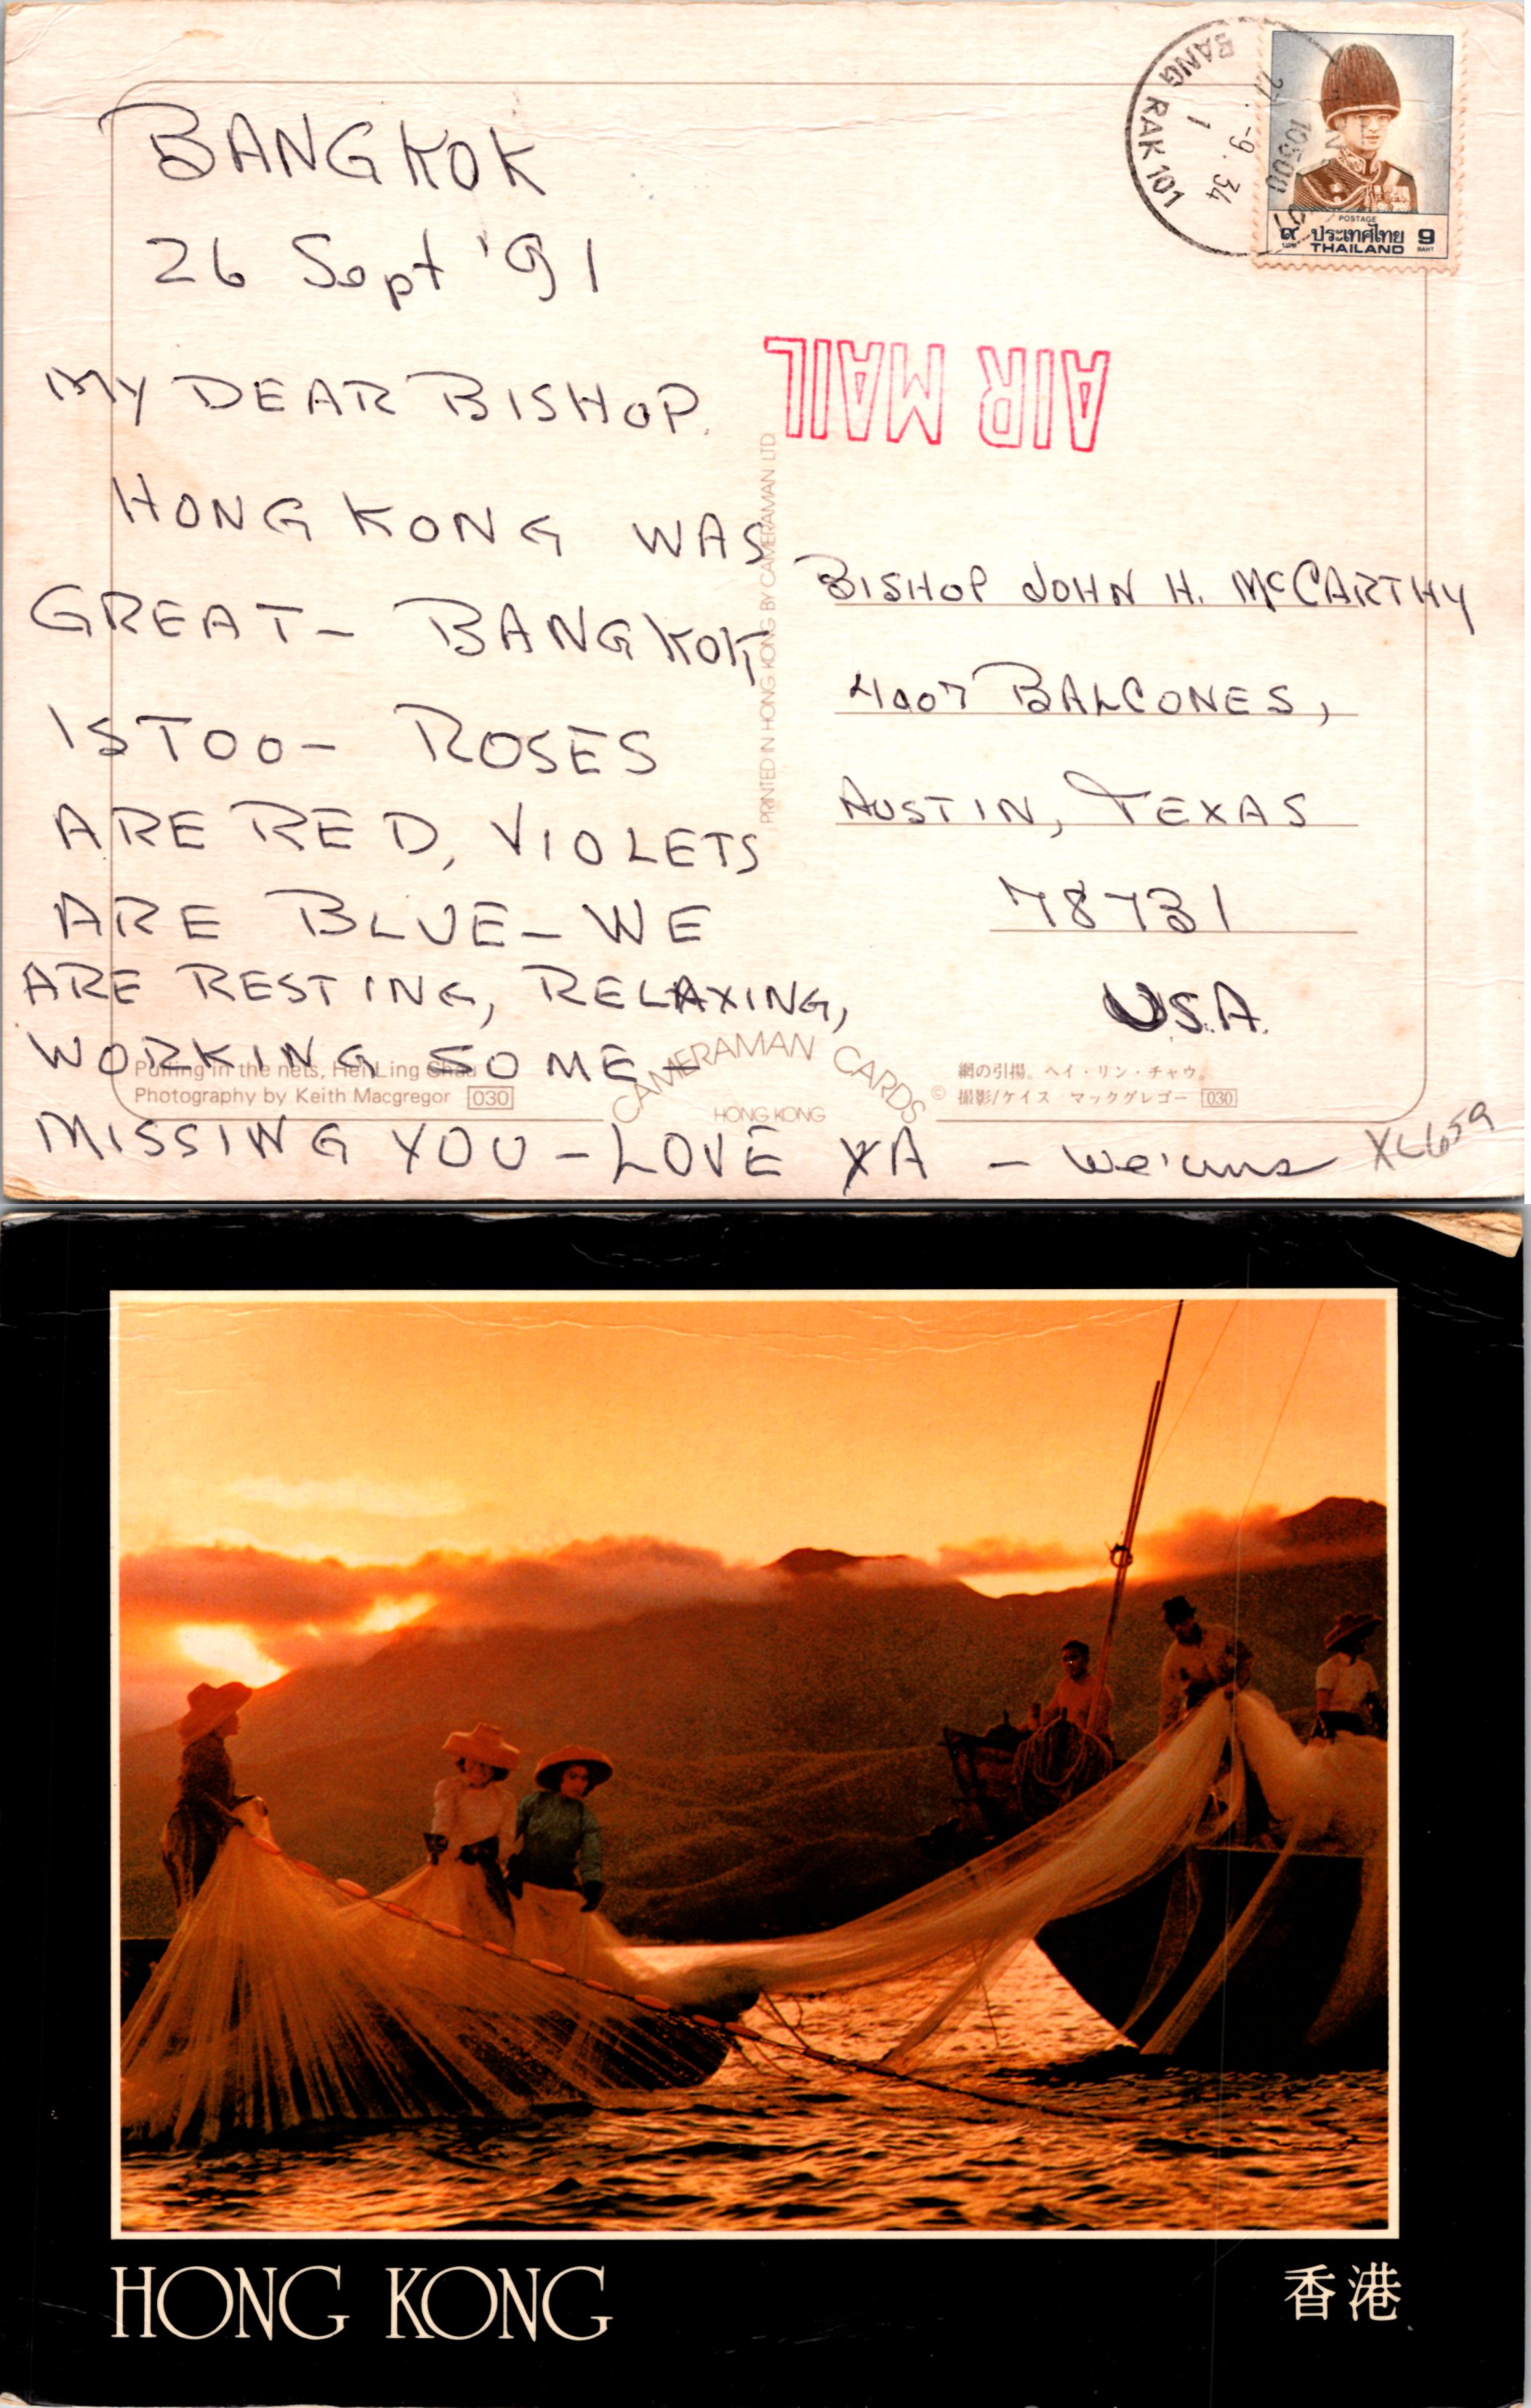 BANGKOK
26 Sept '91
MY DEAR BISHOP.
HONG KONG WAS
GREAT— BANGKOK
IS TOO— ROSES
ARE RED, VIOLETS
ARE BLUE— WE
ARE RESTING, RELAXING,
WORKING SOME—
MISSING YOU — LOVE YA — We'uns
BANG RAK 101
1
27.-9.34
10500
POSTAGE
๙ ประเทศไทย 9
บาท THAILAND BAHT
AIR MAIL
PRINTED IN HONG KONG BY CAMERAMAN LTD
BISHOP JOHN H. McCARTHY
4007 BALCONES,
AUSTIN, TEXAS
78731
USA.
Pulling in the nets, Hei Ling Chau
Photography by Keith Macgregor 030
CAMERAMAN CARDS ©
HONG KONG
網の引揚。ヘイ・リン・チャウ。
撮影/ケイス マックグレゴー 030
XL659
HONG KONG 香港